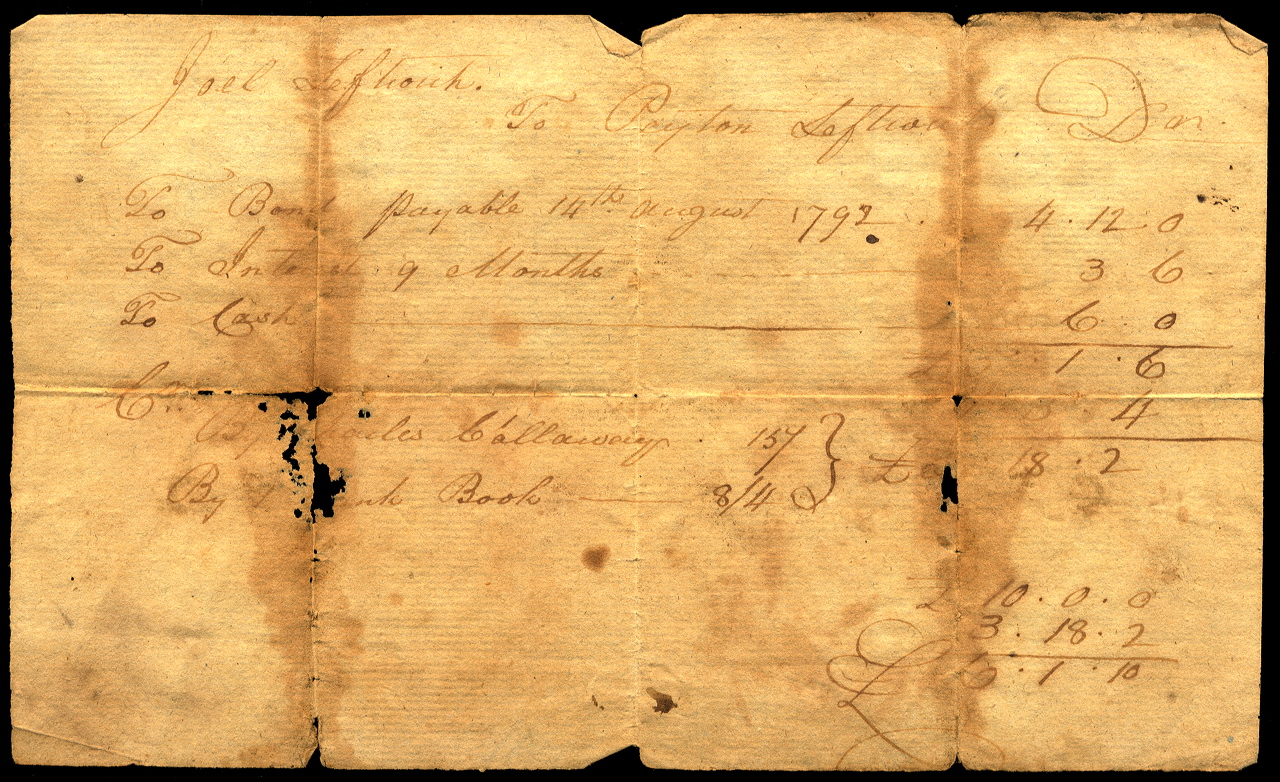 Joel Leftwich.
To Payton Leftwi Dr.
To Bond payable 14th August 1792 . 4 . 12 . 0
To Interest 9 Months 3 6
To Cash 6 0
1 . 6
Cr. 4
By Callaway . 15/ } 18 . 2
By Book 8/4
10 . 0 . 0
3 . 18 . 2
£ 6 . 1 . 10